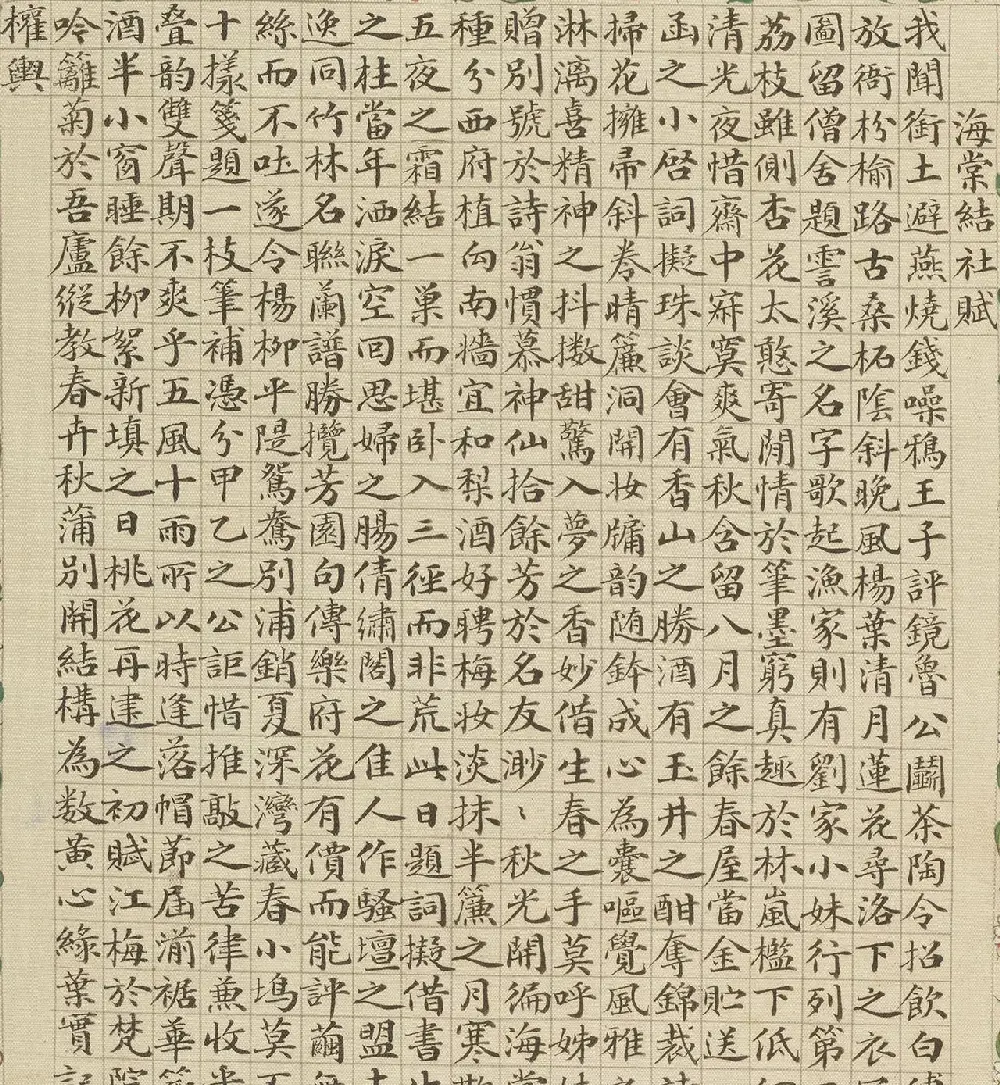 海棠結社賦
我聞銜土避燕燒錢噪鴉王子評鏡魯公鬬茶陶令招飲白
放衙枌榆路古桑柘陰斜晚風楊葉清月蓮花尋洛下之衣
圖留僧舍題霅溪之名字歌起漁家則有劉家小妹行列第
荔枝雖側杏花太憨寄閒情於筆墨窮真趣於林嵐檻下低
清光夜惜齋中寂寞爽氣秋含留八月之餘春屋當金貯送
函之小啓詞擬珠談會有香山之勝酒有玉井之酣奪錦裁
掃花擁帚斜卷晴簾洞開妝牖韵随鉢成心為囊嘔覺風雅
淋漓喜精神之抖擻甜驚入夢之香妙借生春之手莫呼姊
贈別號於詩翁慣慕神仙拾餘芳於名友渺〻秋光開徧海
種分西府植向南牆宜和梨酒好聘梅妝淡抹半簾之月寒
五夜之霜結一巢而堪卧入三徑而非荒此日題詞擬借書
之柱當年洒淚空回思婦之腸倩繡閣之佳人作騷壇之盟
逸同竹林名聯蘭譜勝攬芳園句傳樂府花有價而能評繭
絲而不吐遂令楊柳平隄鴛鴦別浦銷夏深灣藏春小塢莫
十樣箋題一枝筆補憑分甲乙之公詎惜推敲之苦律兼收
疊韵雙聲期不爽乎五風十雨所以時逢落帽節屆湔裾華
酒半小窗睡餘柳絮新填之日桃花再建之初賦江梅於梵
吟籬菊於吾廬縱教春卉秋蒲別開結構為数黃心綠葉實
權輿